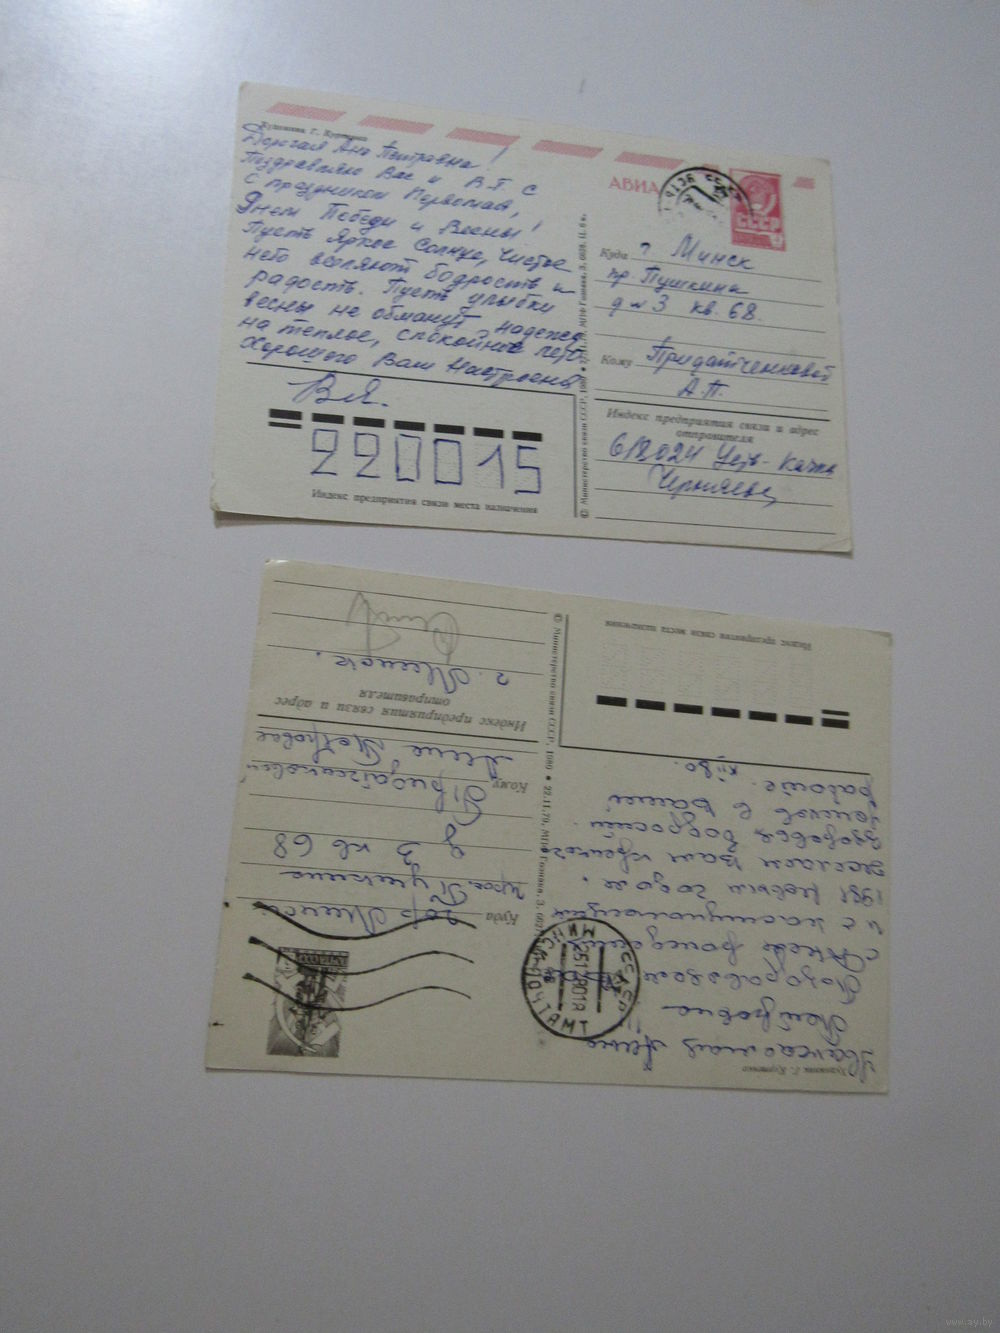 Художник Г. Куртенко
Дорогая Ана Петровна!
Поздравляю Вас и В.Т. с
с праздником Первомая,
Днем Победы и Весны!
Пусть яркое солнце, чистое
небо вселяют бодрость и
радость. Пусть улыбки
весны не обманут надежд
на теплое, спокойное
Хорошего Вам настроения
В.Я.
220015
Индекс предприятия связи места назначения
© Министерство связи СССР, 1980
АВИА
СССР
Куда г Минск
пр. Пушкина
д № 3 кв. 68.
Кому Придатченковой
А.П.
Индекс предприятия связи и адрес
отправителя
612024 Усть-Качка
Черняева
Художник Г. Куртенко
Уважаемая Анна
Петровна
Поздравляем
и с наступающим
1981 Новым годом.
желаем Вам крепкого
здоровья, бодрости
успехов в Вашей
работе.
Индекс предприятия связи места назначения
© Министерство связи СССР, 1980 • 22.11.79. МПФ Гознака. З.
МИНСК ПОЧТАМТ
Куда гор Минск
прос. Пушкина
д 3 кв 68
Кому Придатченковой
Анне Петровне
Индекс предприятия связи и адрес
отправителя
г. Минск.
www.ay.by